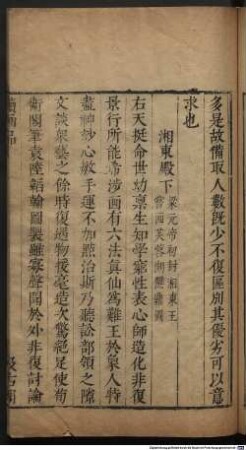 多是故備取人數既少不復區別其優劣可以意
求也
湘東殿下梁元帝初封湘東王
右天挺命世幼稟生知學窮性表心師造化非復
景行所能希涉畫有六法真仙為難王於象人特
盡神妙心敏手運不加點治斯乃聽訟部領之隙
文談衆藝之餘時復遇物援毫造次驚絕足使荀
衛閣筆袁陸韜翰圖製雖寡聲聞於外非復討論